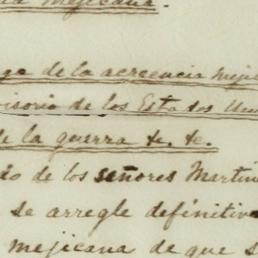 mejicana.
go de la acreencia meji
visorio de los Estados Un
de la guerra &. &.
do de los señores Martin
se arregle definitiva
mejicana de que s